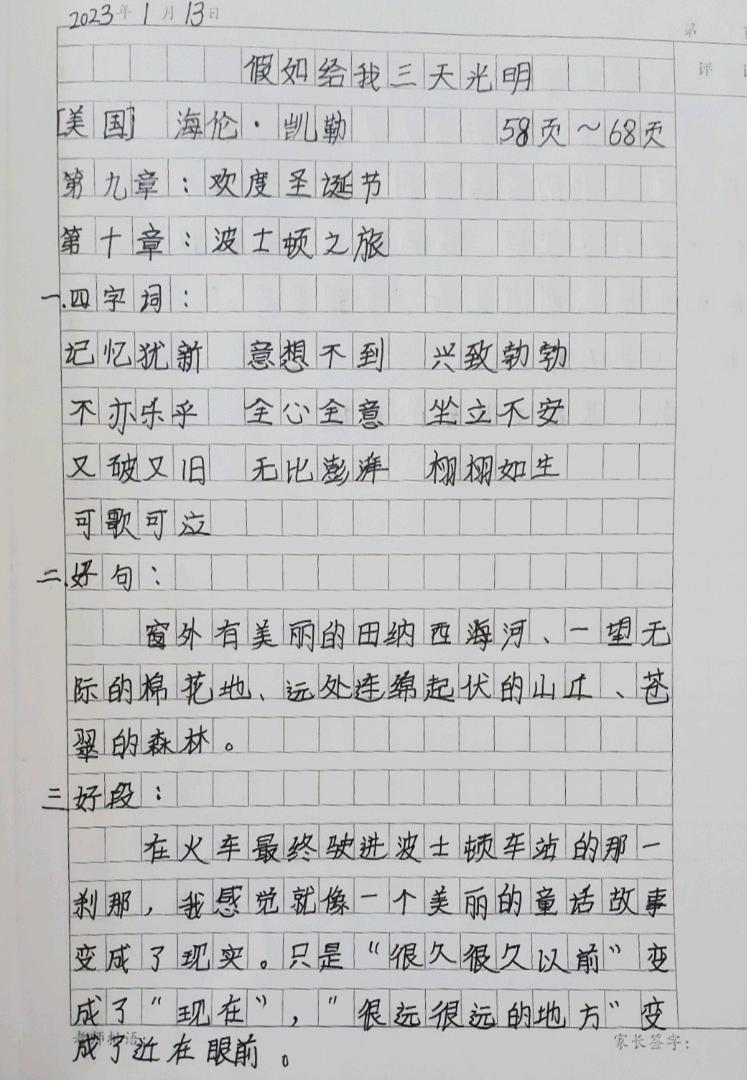 2023年1月13日
第
假如给我三天光明
评
[美国] 海伦·凯勒 58页~68页
第九章：欢度圣诞节
第十章：波士顿之旅
一.四字词：
记忆犹新 意想不到 兴致勃勃
不亦乐乎 全心全意 坐立不安
又破又旧 无比澎湃 栩栩如生
可歌可泣
二.好句：
窗外有美丽的田纳西海河、一望无
际的棉花地、远处连绵起伏的山丘、苍
翠的森林。
三好段：
在火车最终驶进波士顿车站的那一
刹那，我感觉就像一个美丽的童话故事
变成了现实。只是“很久很久以前”变
成了“现在”，“很远很远的地方”变
老师批语: 家长签字:
成了近在眼前。